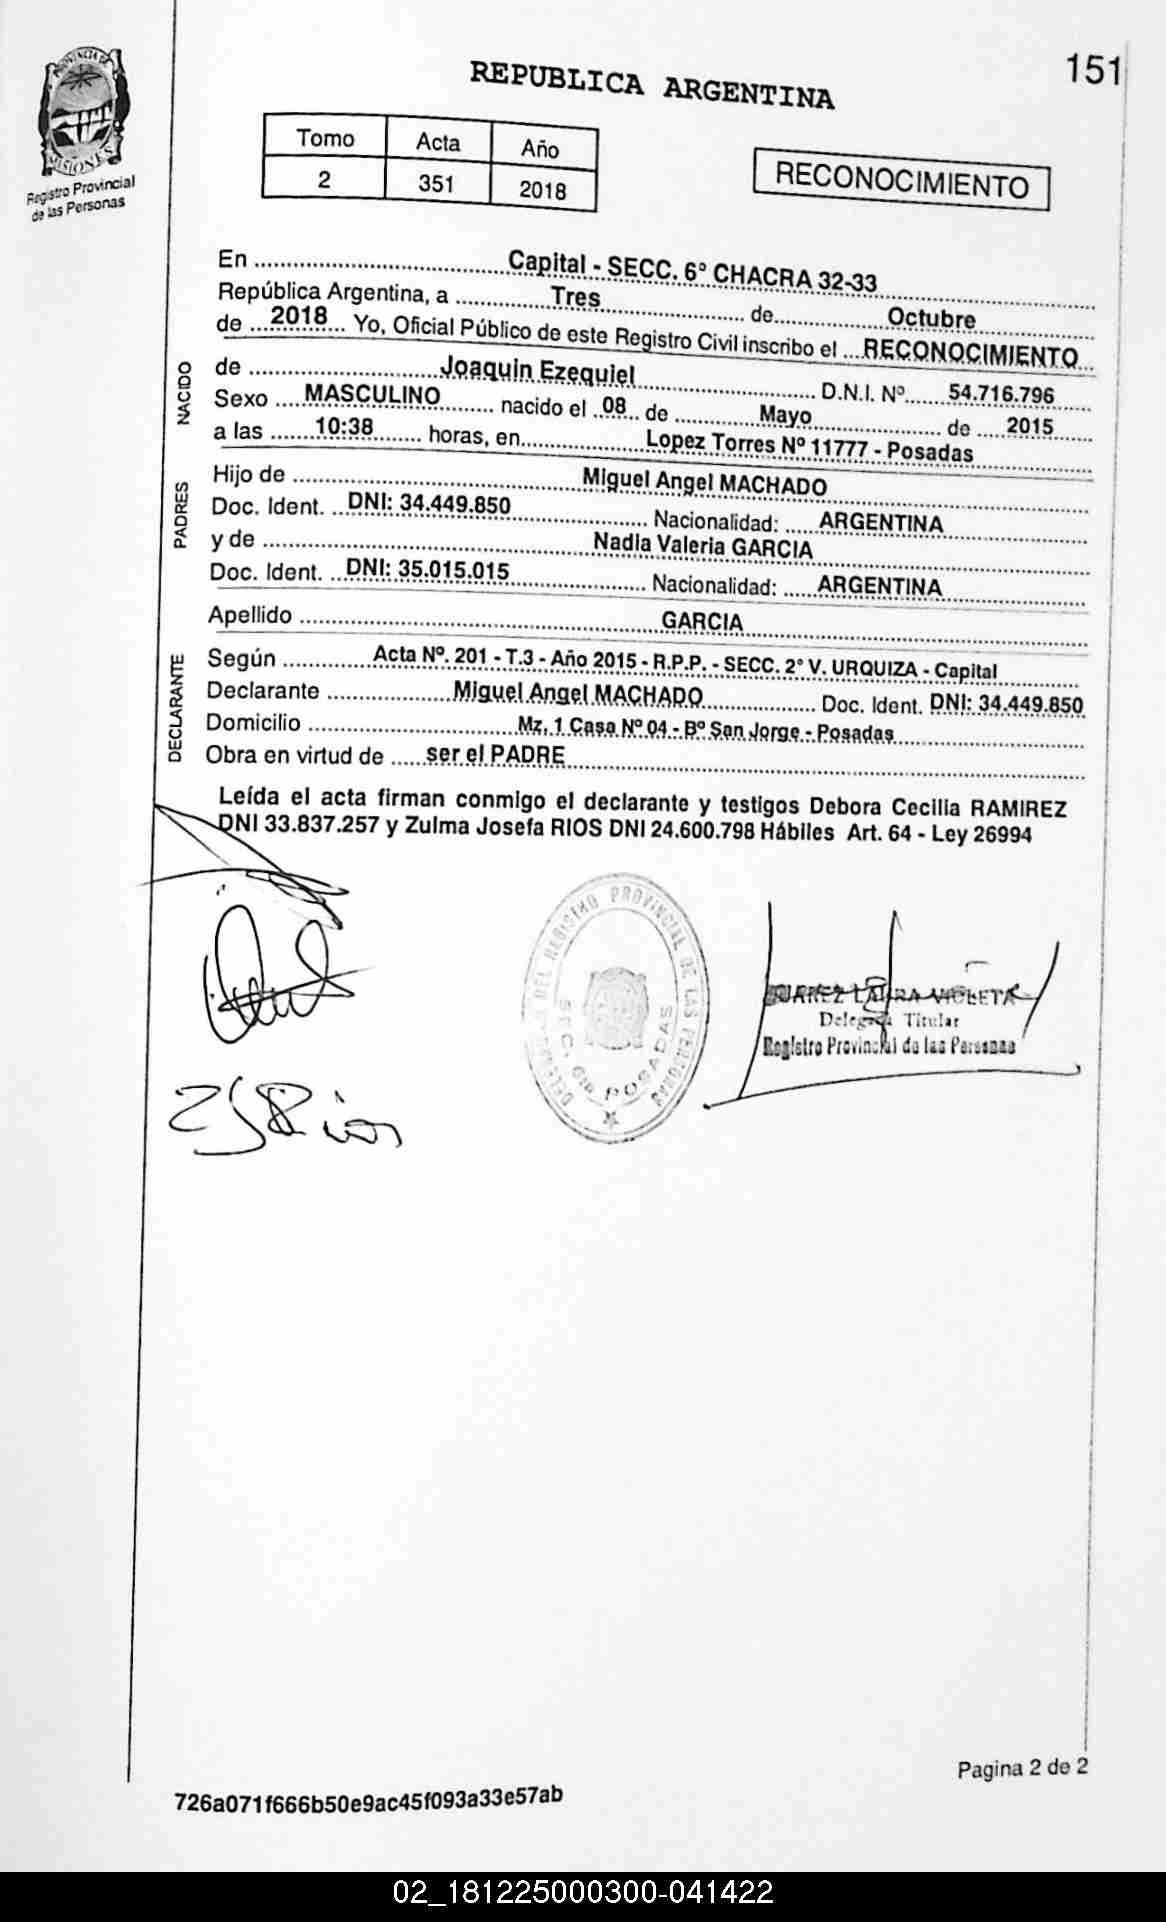 PROVINCIA DE
MISIONES
Registro Provincial
de las Personas
151
REPUBLICA ARGENTINA
Tomo Acta Año
2 351 2018
RECONOCIMIENTO
En ........ Capital - SECC. 6° CHACRA 32-33
República Argentina, a ........ Tres ........ de ........ Octubre
de .... 2018 .... Yo, Oficial Público de este Registro Civil inscribo el ... RECONOCIMIENTO
NACIDO
de ........ Joaquin Ezequiel ........ D.N.I. Nº ...... 54.716.796
Sexo .... MASCULINO ........ nacido el .. 08 .. de ........ Mayo ........ de .... 2015
a las ...... 10:38 ...... horas, en ........ Lopez Torres Nº 11777 - Posadas
PADRES
Hijo de ........ Miguel Angel MACHADO
Doc. Ident. ... DNI: 34.449.850 ........ Nacionalidad: .... ARGENTINA
y de ........ Nadia Valeria GARCIA
Doc. Ident. ... DNI: 35.015.015 ........ Nacionalidad: .... ARGENTINA
Apellido ........ GARCIA
DECLARANTE
Según ........ Acta Nº. 201 - T.3 - Año 2015 - R.P.P. - SECC. 2° V. URQUIZA - Capital
Declarante ........ Miguel Angel MACHADO ........ Doc. Ident. DNI: 34.449.850
Domicilio ........ Mz. 1 Casa Nº 04 - Bº San Jorge - Posadas
Obra en virtud de ..... ser el PADRE
Leída el acta firman conmigo el declarante y testigos Debora Cecilia RAMIREZ
DNI 33.837.257 y Zulma Josefa RIOS DNI 24.600.798 Hábiles Art. 64 - Ley 26994
DEL REGISTRO PROVINCIAL DE LAS PERSONAS
POSADAS
LAURA VIOLETA
Delegada Titular
Registro Provincial de las Personas
ZJRios
Pagina 2 de 2
726a071f666b50e9ac45f093a33e57ab
02_181225000300-041422